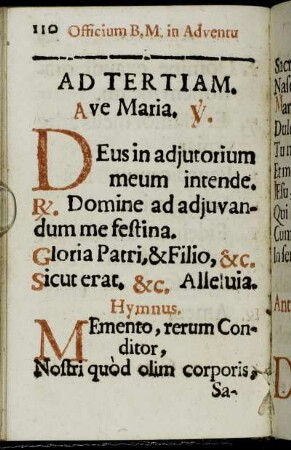 110 Officium B.M. in Adventu
AD TERTIAM.
Ave Maria. ℣.
DEus in adjutorium
meum intende.
℟. Domine ad adjuvan-
dum me festina.
Gloria Patri,&Filio, &c.
Sicut erat. &c. Alleluia.
Hymnus.
MEmento, rerum Con-
ditor,
Nostri quòd olim corporis,
Sa-